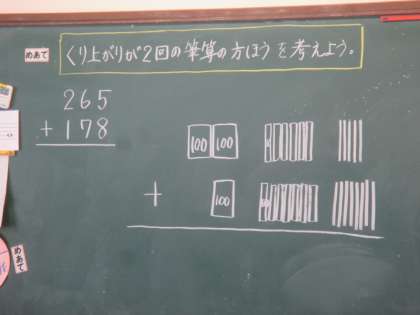 めあて
くり上がりが2回の筆算の方ほうを考えよう。
265
+ 178
100 100
+ 100
めあて